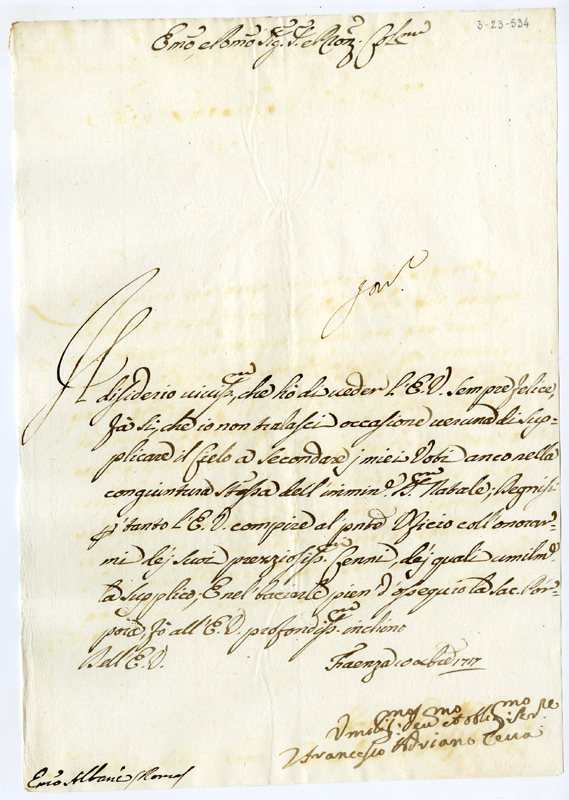 3-23-534
Emo, e Rmo Sig.r
Il
disiderio viviss.mo, che hò di veder l'E.V. sempre felice,
fà sì, che io non tralasci occasione veruna di sup-
plicare il Cielo a secondare j miei Voti anco nella
congiuntura stessa dell'immin.e S.mo Natale; Degnisi
p tanto l'E.V. compire al pnte Ufficio coll'onorar-
mi de suoi prezziosiss.mi Cenni, de quali umilm.e
la supplico; E nel baciarle pien d'ossequio la Sac. Por-
pora, fò all'E.V. profondiss.mo inchino
Dell'E.V.
Faenza 10 Xbre 1717
Umiliss.mo Dev.mo et obblig.mo Ser.re
Francesco Adriano Ceva
Emo Albani Roma